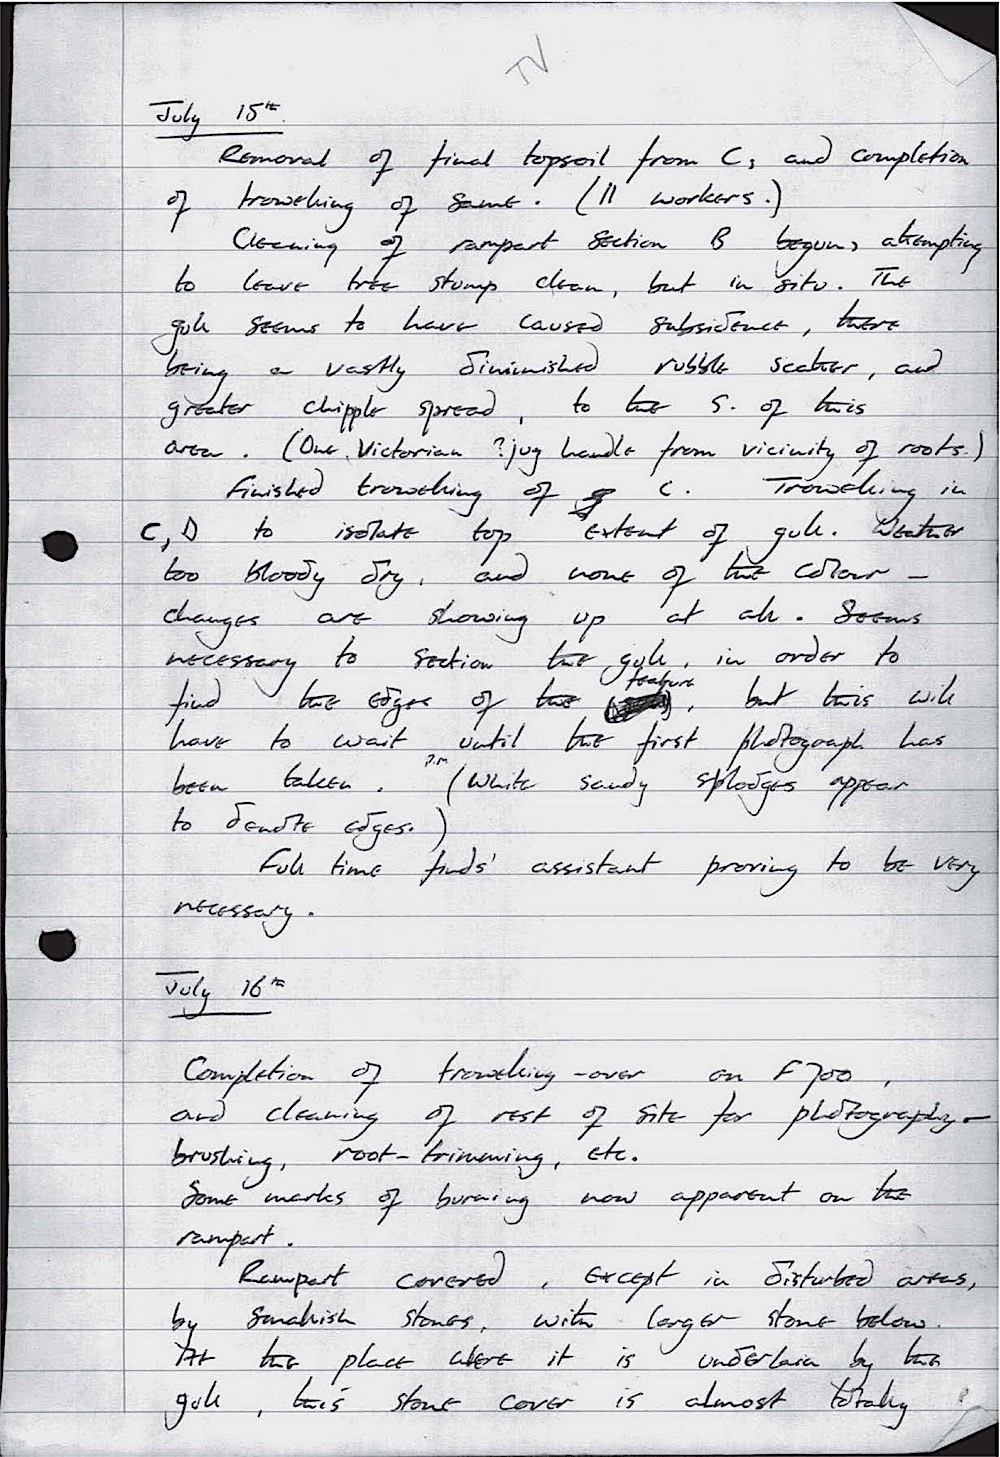 TV
July 15th
Removal of final topsoil from C, and completion
of trowelling of same. (11 workers.)
Cleaning of rampart section B begun, attempting
to leave tree stump clean, but in situ. The
gull seems to have caused subsidence, there
being a vastly diminished rubble scatter, and
greater chipple spread, to the S. of this
area. (One Victorian ?jug handle from vicinity of roots.)
Finished trowelling of C. Trowelling in
C, D to isolate top extent of gull. Weather
too bloody dry, and none of the colour-
changes are showing up at all. Seems
necessary to section the gull, in order to
feature
find the edges of the, but this will
have to wait until the first photograph has
been taken. p.m. (White sandy splodges appear
to denote edges.)
Full time finds' assistant proving to be very
necessary.
July 16th
Completion of trowelling-over on F700,
and cleaning of rest of site for photography-
brushing, root-trimming, etc.
Some marks of burning now apparent on the
rampart.
Rampart covered, except in disturbed areas,
by smallish stones, with larger stone below.
At the place where it is underlain by the
gull, this stone cover is almost totally